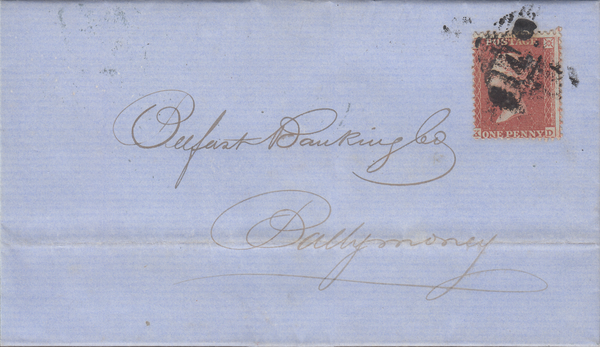 POSTAGE
ONE PENNY D
Belfast Banking Co
Ballymoney